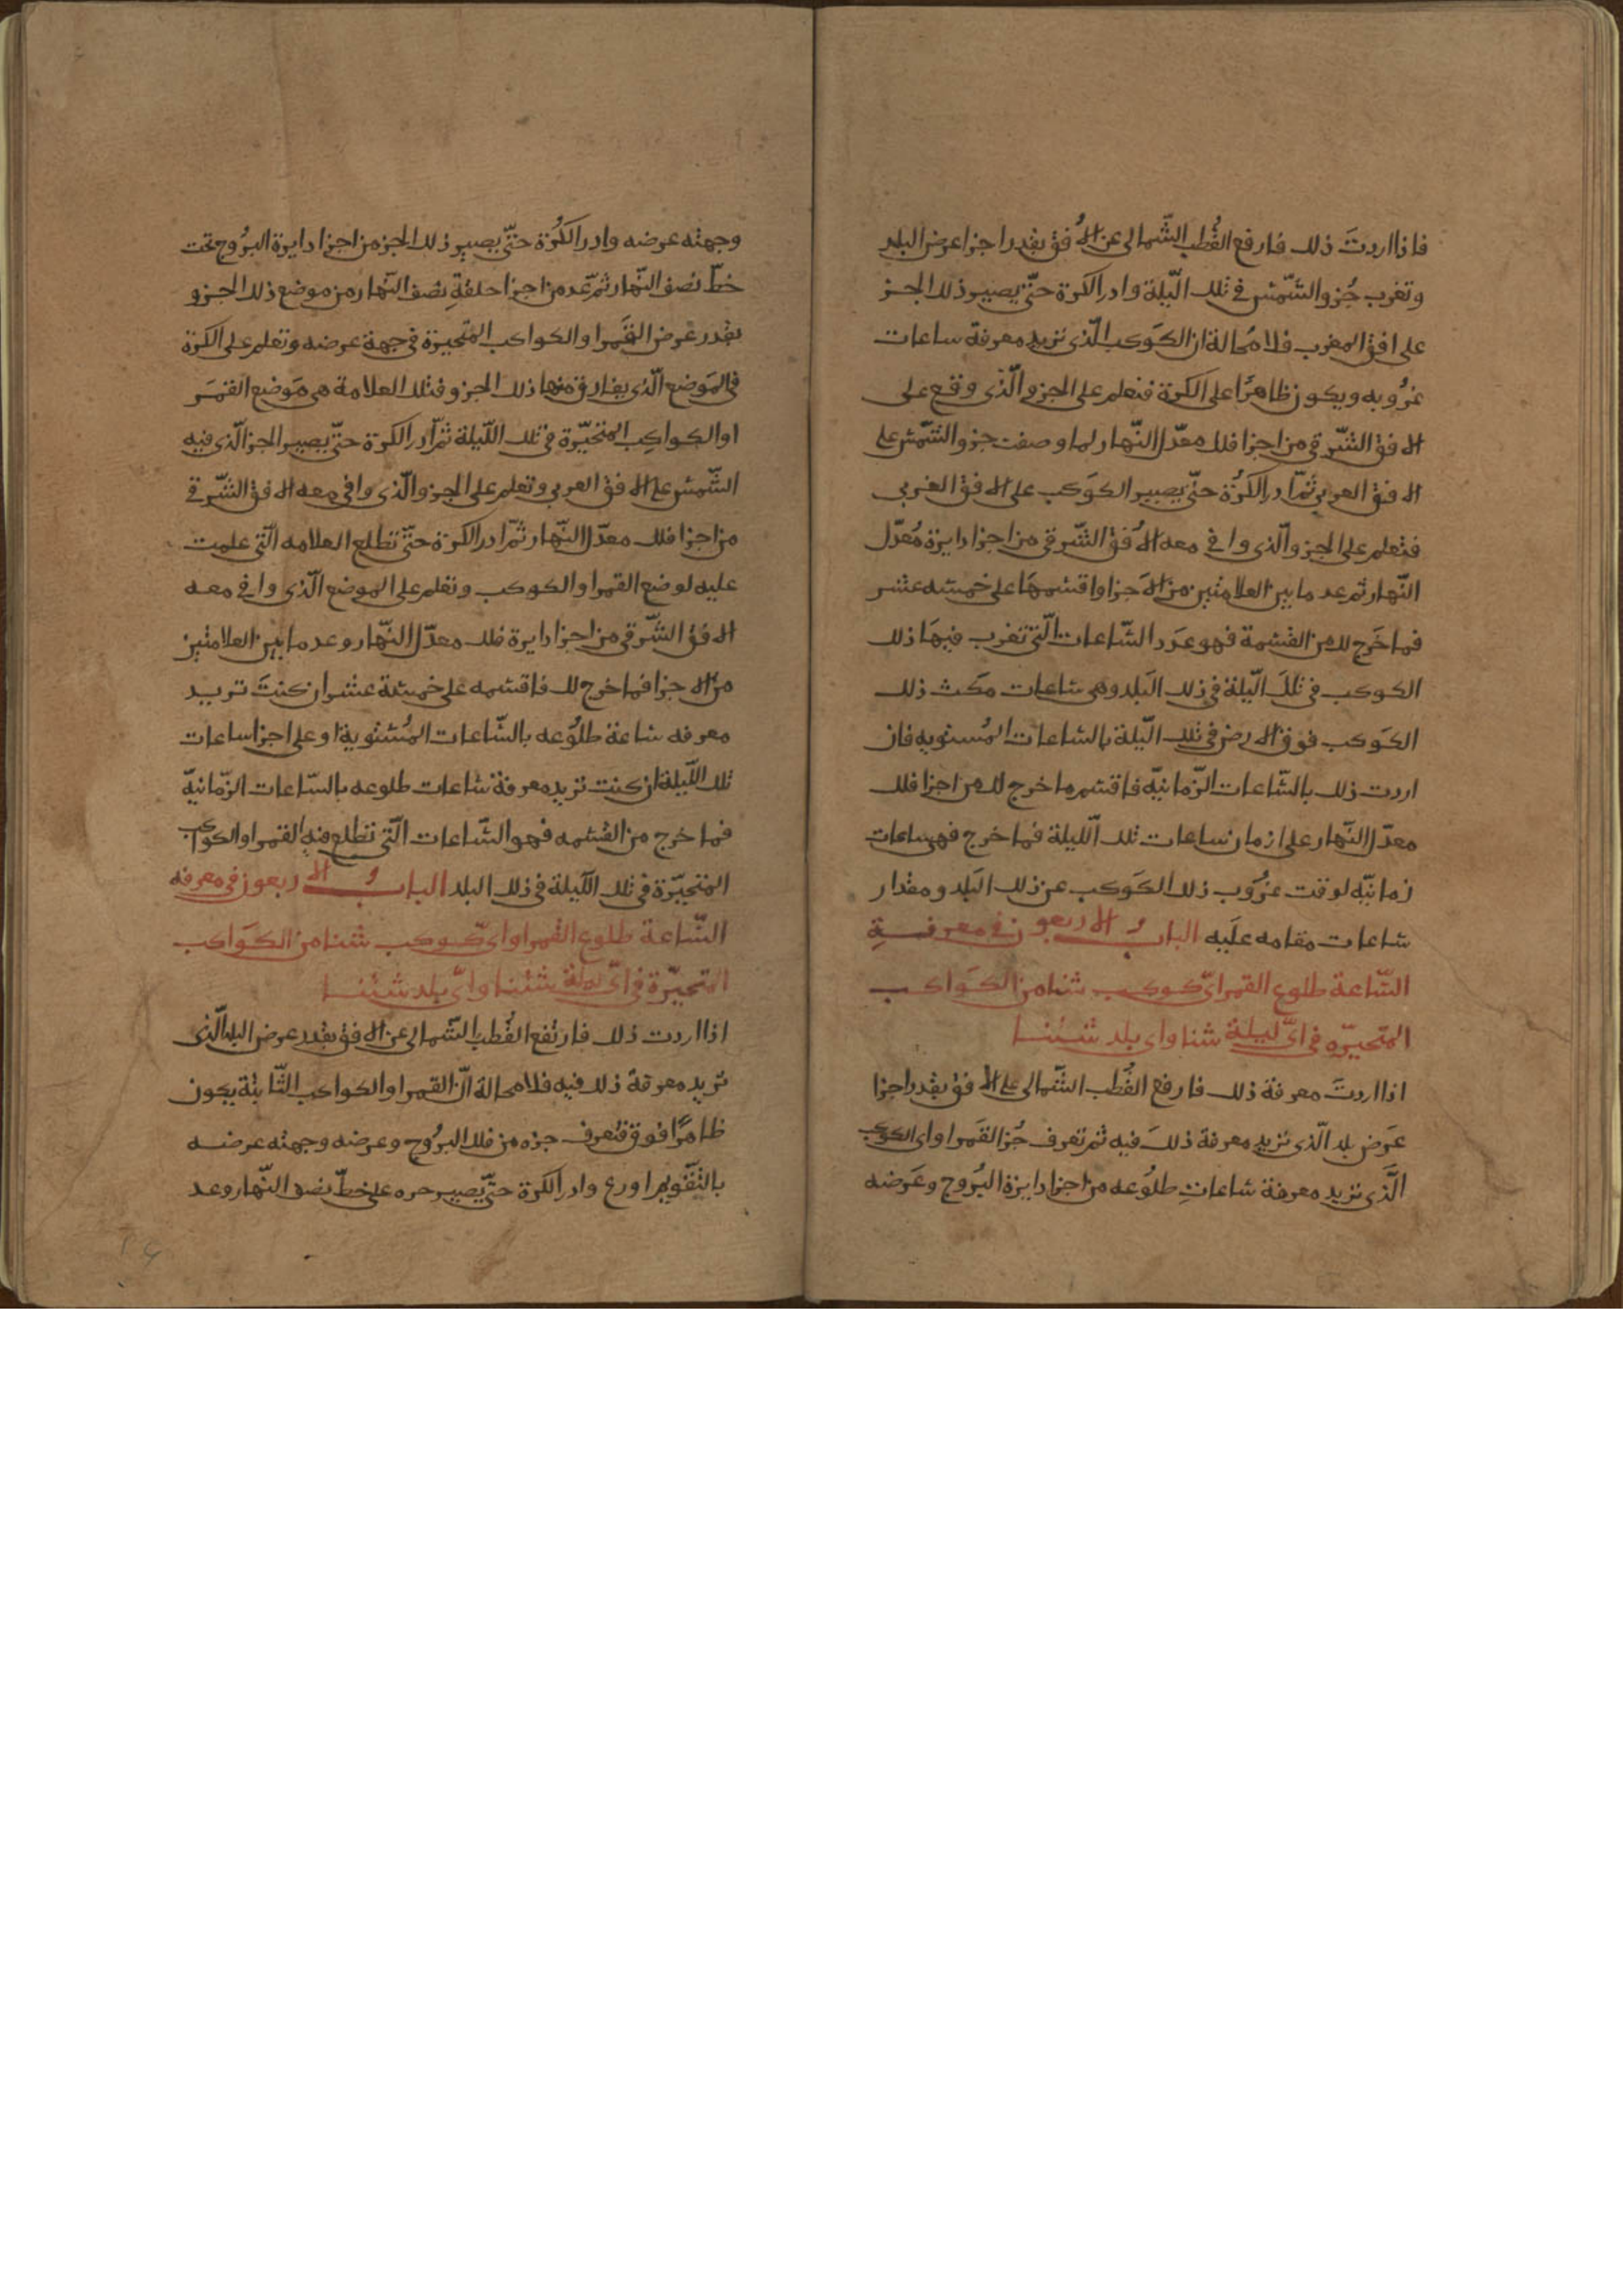 فاذا اردتَ ذلك فارفع القُطب الشّمالى عن الاُفق بقدر اجزا عرض البلد
وتغرب جُزو الشّمس فى تلك الّيلة وادر الكرة حتّى يصيير ذلك الجـز
على افق المغرب فلا مُحالة ان الكَوكب الّذى تريد معرفة ساعات
غرُوبه ويكون ظاهرًا على الكرة فتعلم على الجزو الّذى وقع على
الافق الشّرقى من اجزا فلك معدّل النّهار لما وصفت جزو الشّمس على
الافق الغربى ثمّ ادر الكرُة حتّى يصيير الكوَكب على الافق الغربى
فتعلم على الجزو الّذى وافى معه الاُفق الشّرقى من اجزا دايرة مُعدّل
النّهار ثم عد ما بين العلامتين من الاجزا واقسمهَا على خمسه عشر
فما خَرج لك من القسمة فهو عدَد السّاعات الّتى تغرب فيهَا ذلك
الكوكب فى تلكَ الّيلة فى ذلك البَلد وهى ساعات مكَث ذلك
الكوَكب فوق الارض فى تلك الّيلة بالساعات المُستويه فان
اردت ذلك بالسّاعات الزّمانيّه فاقسم ما خرج لك من اجزا فلك
معدّل النّهار على ازمان ساعات تلك الّليلة فما خرج فهى ساعات
زمانيّه لوقت غرُوب ذلك الكَوكب عن ذلك البَلد ومقدار
ساعات مقامه علَيه الباب و الاربعون فى معرفـــةِ
السّاعة طلوع القمر اىّ كوكب شئنا من الكَواكب
المتحيّره فى اىّ ليلة شئنا واى بلد شئنـا
اذا اردتَ معرفة ذلك فارفع القُطب الشّمالى على الافق بقدر اجزا
عَرض بلد الّذى تريد معرفة ذلكَ فيه ثم تعرف جُز القَمر او اى الكوكب
الَّذى تريد معرفة ساعاتِ طلوُعه من اجزا دايرة البُروج وعَرضه
وجهته عرضه وادر الكُرة حتّى يصيير ذلك الجز من اجزا دايرة البرُوج تحت
خطّ نصف النّهار ثمّ عد من اجزا حلقةِ نصف النّهار من موضع ذلك الجـزو
بقدر عرض القَمر او الكواكب المتحيرة فى جهة عرضه وتعلم على الكرة
فى المَوضع الّذى يفارق منها ذلك الجزو فتلك العلامة هى مَوضع القمَر
او الكواكِب المتحيّرة فى تلك اللّيلة ثمّ ادر الكرة حتّى يصيير الجز الّذى فيه
الشّمس على الافق الغربى وتعلم على الجزو الّذى وافى معه الافق الشّرقى
من اجزا فلك معدّل النّهار ثمّ ادر الكرة حتّى تطلع العلامه الّتى علمت
عليه لوضع القمر او الكوكب وتعلم على الموضع الّذى وافى معـه
الافق الشّرقى من اجزا دايرة فلك معدّل النّهار وعد ما بين العلامتين
من الاجزا فما خرج لك فاقسمه على خمسة عشر ان كنتَ تريـد
معرفه ساعة طلوُعه بالسّاعات المُستوية او على اجزا ساعات
تلك اللّيلة ان كنت تريد معرفة ساعات طلوعه بالسّاعات الزّمانيّة
فما خرج من القسمه فهو السّاعات الّتى تطلع فيه القمر او الكواكب
المتحيّرة فى تلك اللّيلة فى ذلك البلد الباب و الاربعون فى معرفه
السّاعة طلوع القمر او اىّ كوكب شئنا من الكوَاكب
المتحيّرة فى اىّ ليلة شئنا واىّ بلد شئنـا
اذا اردت ذلك فارتفع القُطب الشّمالى عن الافق بقدر عرض البلد الّذى
تريد معرفة ذلك فيه فلا محالة انّ القمر او الكواكب الثّابتة يكون
ظاهرًا فوق فتعرف جزه من فلك البرُوج وعرضه وجهته عرضـه
بالتّقويم وادر الكرة حتّى يصيير على خطّ نصف النّهار وعد